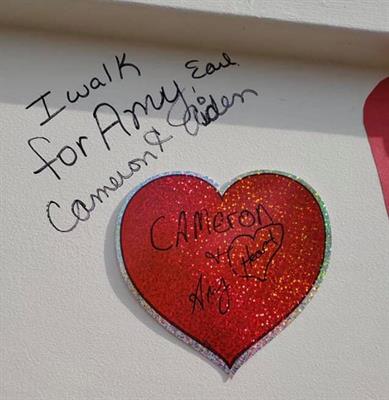 I walk
for Amy, Earl
Cameron & Jaiden
CAMERON
& Heart
Amy